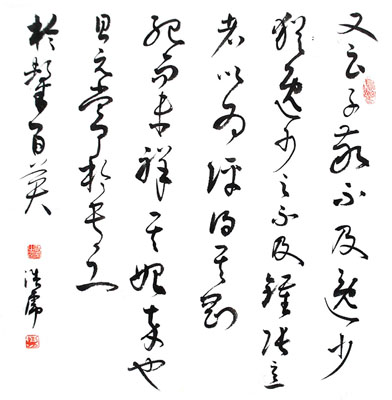 又云子敬不及逸少
猶逸少之不及鍾張意
者以為評得其
紀而未詳其始卒也
且元常專工
於隸書百英
浩